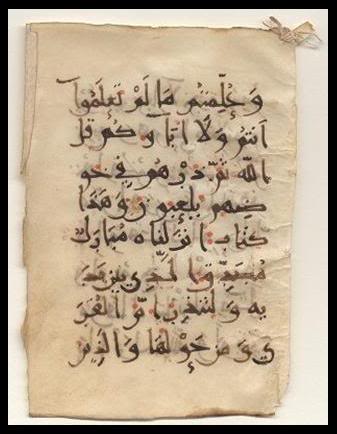 وَعُلِّمْتُم مَا لَمْ تَعْلَمُوا
انتم وَلَا ابَاوكُم قل
الله ثمّ ذرهم في خو
ضهم يلعبون وهَذَا
كتَاب انزلنَاه مبَارك
مُصَدِّق الَّذِي بين يَد
يه وَلتنذر امّ القرَ
ى ومن حَوْلهَا وَالذين